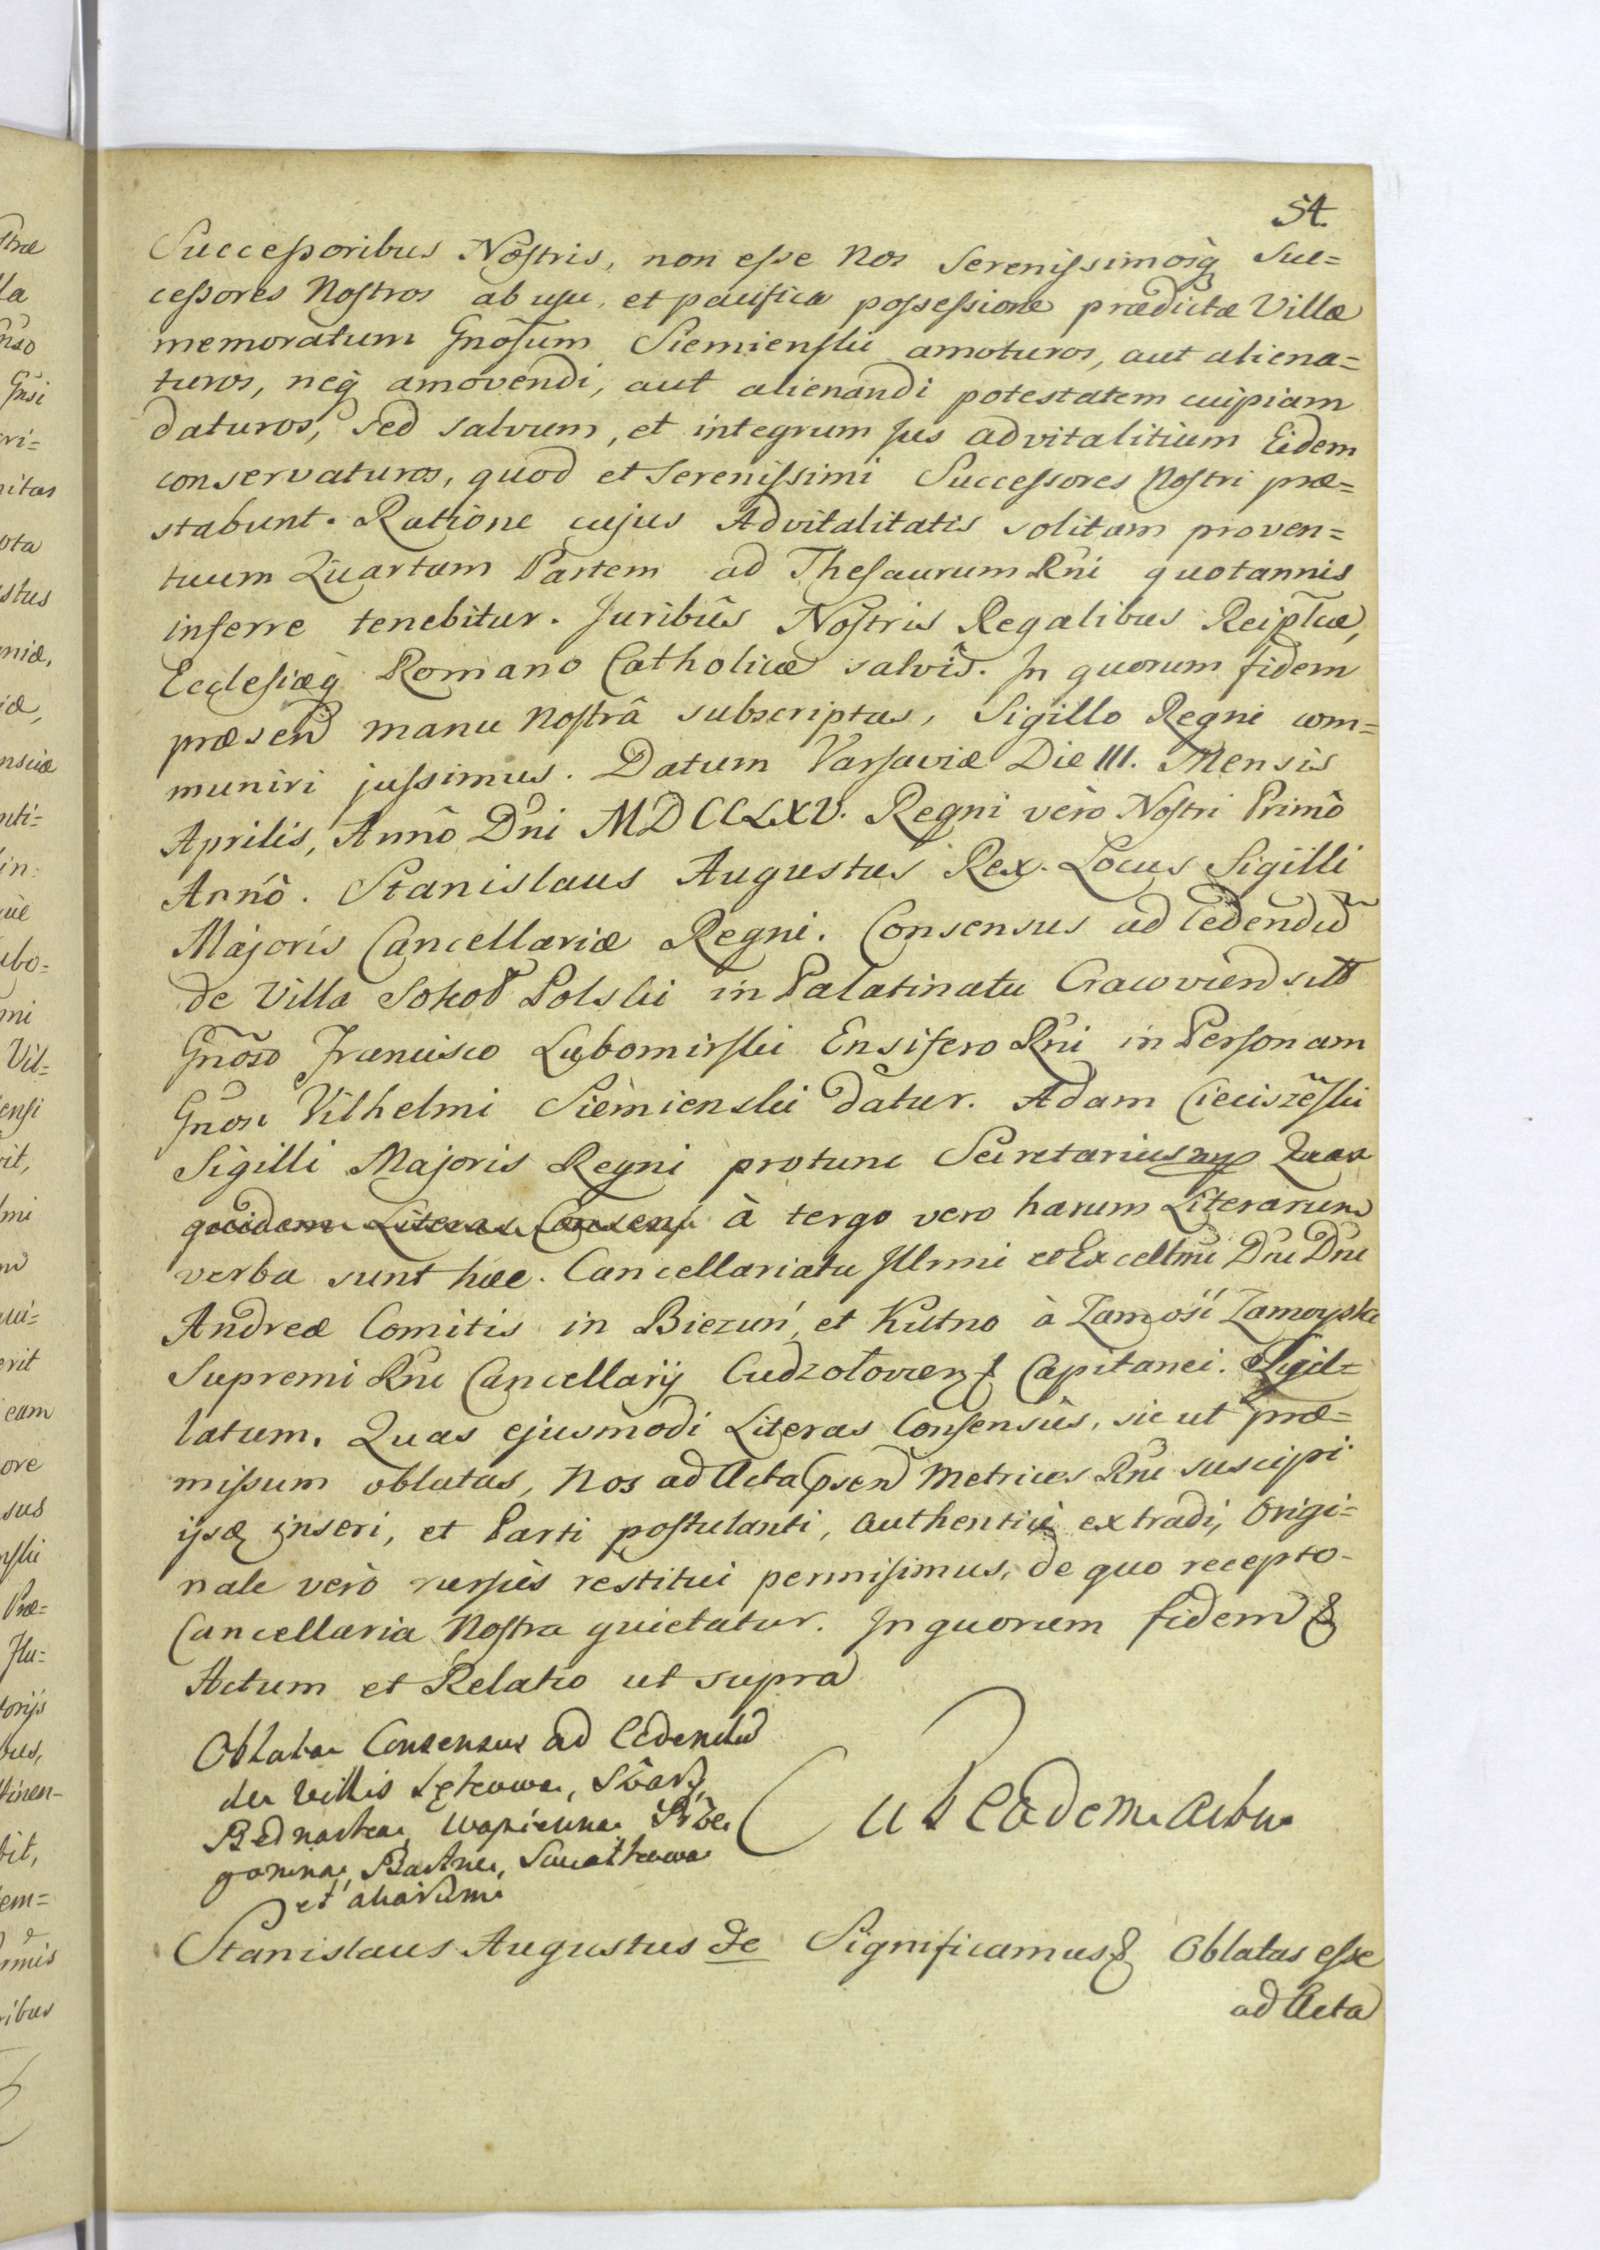 54.
Successoribus Nostris, non esse Nos Serenissimosq̃ Suc=
cessores Nostros ab usu, et pacifica possessione prædictæ Villæ
memoratum Gnõsum Siemienski amoturos, aut aliena=
turos, neq̃ amovendi, aut alienandi potestatem cuipiam
daturos, sed salvum, et integrum Jus advitalitium Eidem
conservaturos, quod et Serenissimi Successores Nostri præ=
stabunt. Ratione cujus Advitalitatis solitam proven=
tuum Quartam Partem ad Thesaurum Rñi quotannis
inferre tenebitur. Juribûs Nostris Regalibus Reiptcæ,
Ecclesiæq̃ Romano Catholicæ salvîs. In quorum fidem
præsen manu Nostrâ subscriptas, Sigillo Regni com=
muniri jussimus. Datum Varsaviæ Die III. Mensis
Aprilis, Annô Dñi MDCCLXV. Regni vèro Nostri Primô
Annô. Stanislaus Augustus Rex. Locus Sigilli
Majoris Cancellariæ Regni. Consensus ad Cedendũ
de Villa Sokoł Polski in Palatinatu Cracovien sitâ
Gnõso Francisco Lubomirski Ensifero Rñi in Personam
Gnõsi Vilhelmi Siemienski datur. Adam Cieciszẽski
Sigilli Majoris Regni protunc Secretarius mp Quas
quidem Literas Consens à tergo vero harum Literarum
verba sunt hæc. Cancellariatu Jllmi et Excellmi Dñi Dñi
Andreæ Comitis in Biezuń, et Kutno à Zamość Zamoyski
Supremi Rñi Cancellarij Cudzołovien & Capitanei. Sigil=
latum. Quas ejusmodi Literas Consensûs, sic ut præ=
missum oblatas, Nos ad Acta psen Metrices Rñi suscipi
ijsq̃ inseri, et Parti postulanti, authenticè extradi, Origi=
nale verò rursùs restitui permisimus, de quo recepto
Cancellaria Nostra quietatur. In quorum fidem &
Actum et Relatio ut supra
Oblata Consensus ad Cedendũ
de Villis Sękowa,
Bednarka, Wapienna
et aliarum
ut Eadem Actu
Stanislaus Augustus &c Significamus & Oblatas esse
ad Acta